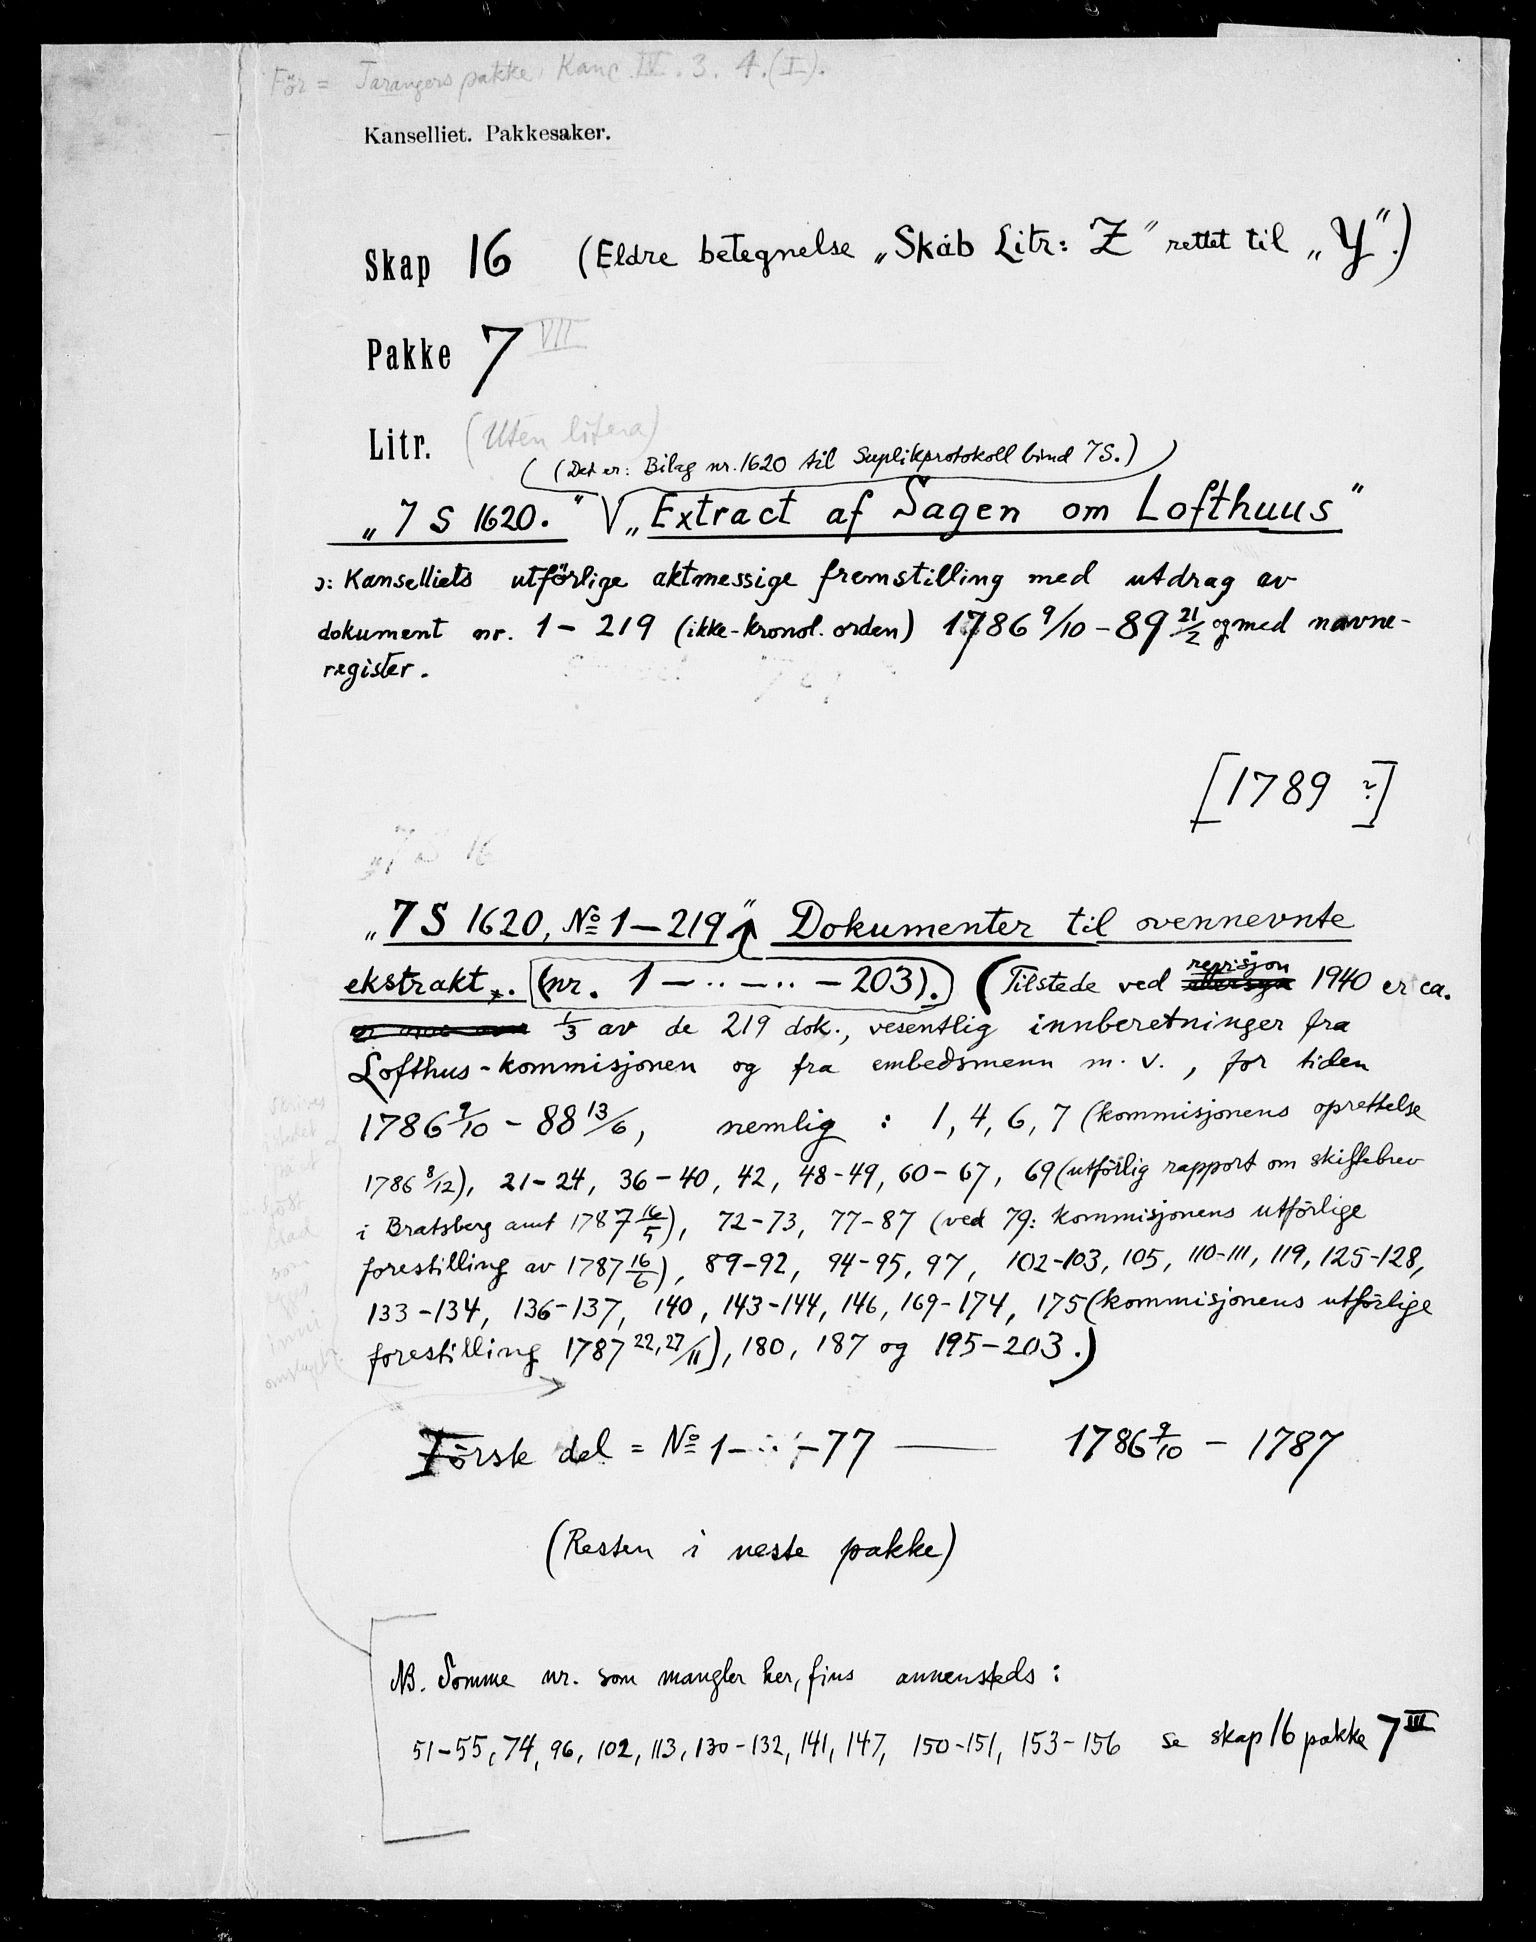 Før = Tarangers pakke, Kanc. IV. 3. 4. (I).
Kanselliet. Pakkesaker.
Skap 16 (Eldre betegnelse „Skab Litr: Z" rettet til „Y".)
Pakke 7 VII
Litr. (Uten litera)
(Det er: Bilag nr. 1620 til Suplikprotokoll bind 7S.)
„7 S 1620." „Extract af Sagen om Lofthuus"
ɔ: Kanselliets utförlige aktmessige fremstilling med utdrag av
dokument nr. 1 – 219 (ikke-kronol. orden) 1786 9/10 – 89 21/2 og med navne-
register.
[1789 ?]
„7 S 1620, No 1 – 219" Dokumenter til ovennevnte
ekstrakt. (nr. 1 – ·· – ·· – 203). (Tilstede ved revisjon 1940 er ca.
1/3 av de 219 dok., vesentlig innberetninger fra
Lofthus-kommisjonen og fra embedsmenn m. v., for tiden
1786 9/10 – 88 13/6, nemlig : 1, 4, 6, 7 (kommisjonens oprettelse
1786 8/12), 21–24, 36–40, 42, 48–49, 60–67, 69 (utförlig rapport om skiftebrev
i Bratsberg amt 1787 16/5), 72–73, 77–87 (ved 79: kommisjonens utförlige
forestilling av 1787 16/6), 89–92, 94–95, 97, 102–103, 105, 110–111, 119, 125–128,
133–134, 136–137, 140, 143–144, 146, 169–174, 175 (kommisjonens utförlige
forestilling 1787 22, 27/11), 180, 187 og 195–203.)
Förste del = No 1 – ·· – 77 — 1786 9/10 – 1787
(Resten i neste pakke)
NB. Somme nr. som mangler her, fins annensteds :
51–55, 74, 96, 102, 113, 130–132, 141, 147, 150–151, 153–156 se skap 16 pakke 7 III